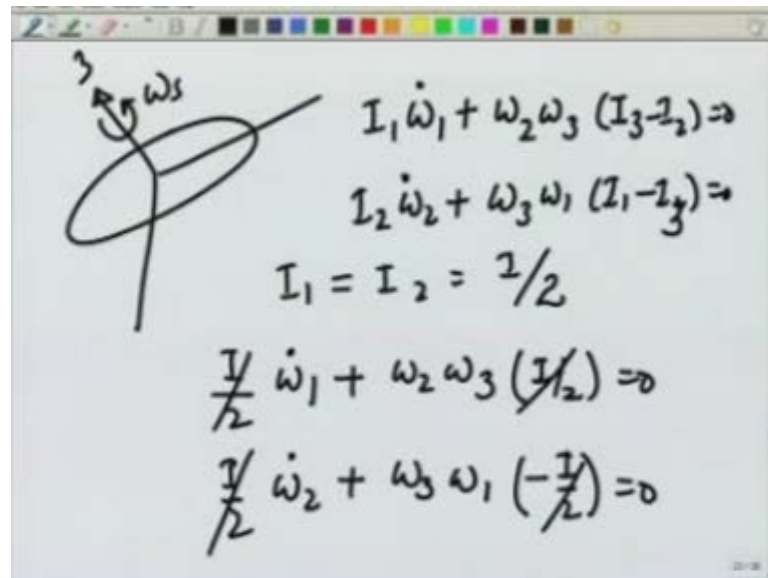 3
ωs
I₁ω̇₁ + ω₂ω₃ (I₃-I₂)=0
I₂ω̇₂ + ω₃ω₁ (I₁-I₃)=0
I₁ = I₂ = I/2
I/2 ω̇₁ + ω₂ω₃ (I/2) =0
I/2 ω̇₂ + ω₃ω₁ (-I/2) =0